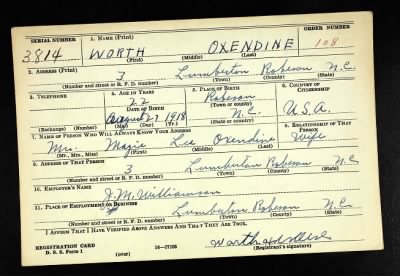 SERIAL NUMBER 1. NAME (Print) ORDER NUMBER
3814 WORTH OXENDINE 108
(First) (Middle) (Last)
2. ADDRESS (Print)
3 Lumberton Robeson N.C.
(Number and street or R. F. D. number) (Town) (County) (State)
3. TELEPHONE 4. AGE IN YEARS 5. PLACE OF BIRTH 6. COUNTRY OF CITIZENSHIP
22 Robeson
DATE OF BIRTH (Town or county)
August 27 1918 N.C. U.S.A.
(Exchange) (Number) (Mo.) (Day) (Yr.) (State or country)
7. NAME OF PERSON WHO WILL ALWAYS KNOW YOUR ADDRESS 8. RELATIONSHIP OF THAT PERSON
Mrs. Magie Lee Oxendine Wife
(Mr., Mrs., Miss) (First) (Middle) (Last)
9. ADDRESS OF THAT PERSON
3 Lumberton Robeson N.C.
(Number and street or R. F. D. number) (Town) (County) (State)
10. EMPLOYER'S NAME
J.M. Williamson
11. PLACE OF EMPLOYMENT OR BUSINESS
Lumberton Robeson N.C.
(Number and street or R. F. D. number) (Town) (County) (State)
I AFFIRM THAT I HAVE VERIFIED ABOVE ANSWERS AND THAT THEY ARE TRUE.
REGISTRATION CARD 16—17105 Worth
D. S. S. Form 1 (Registrant's signature)